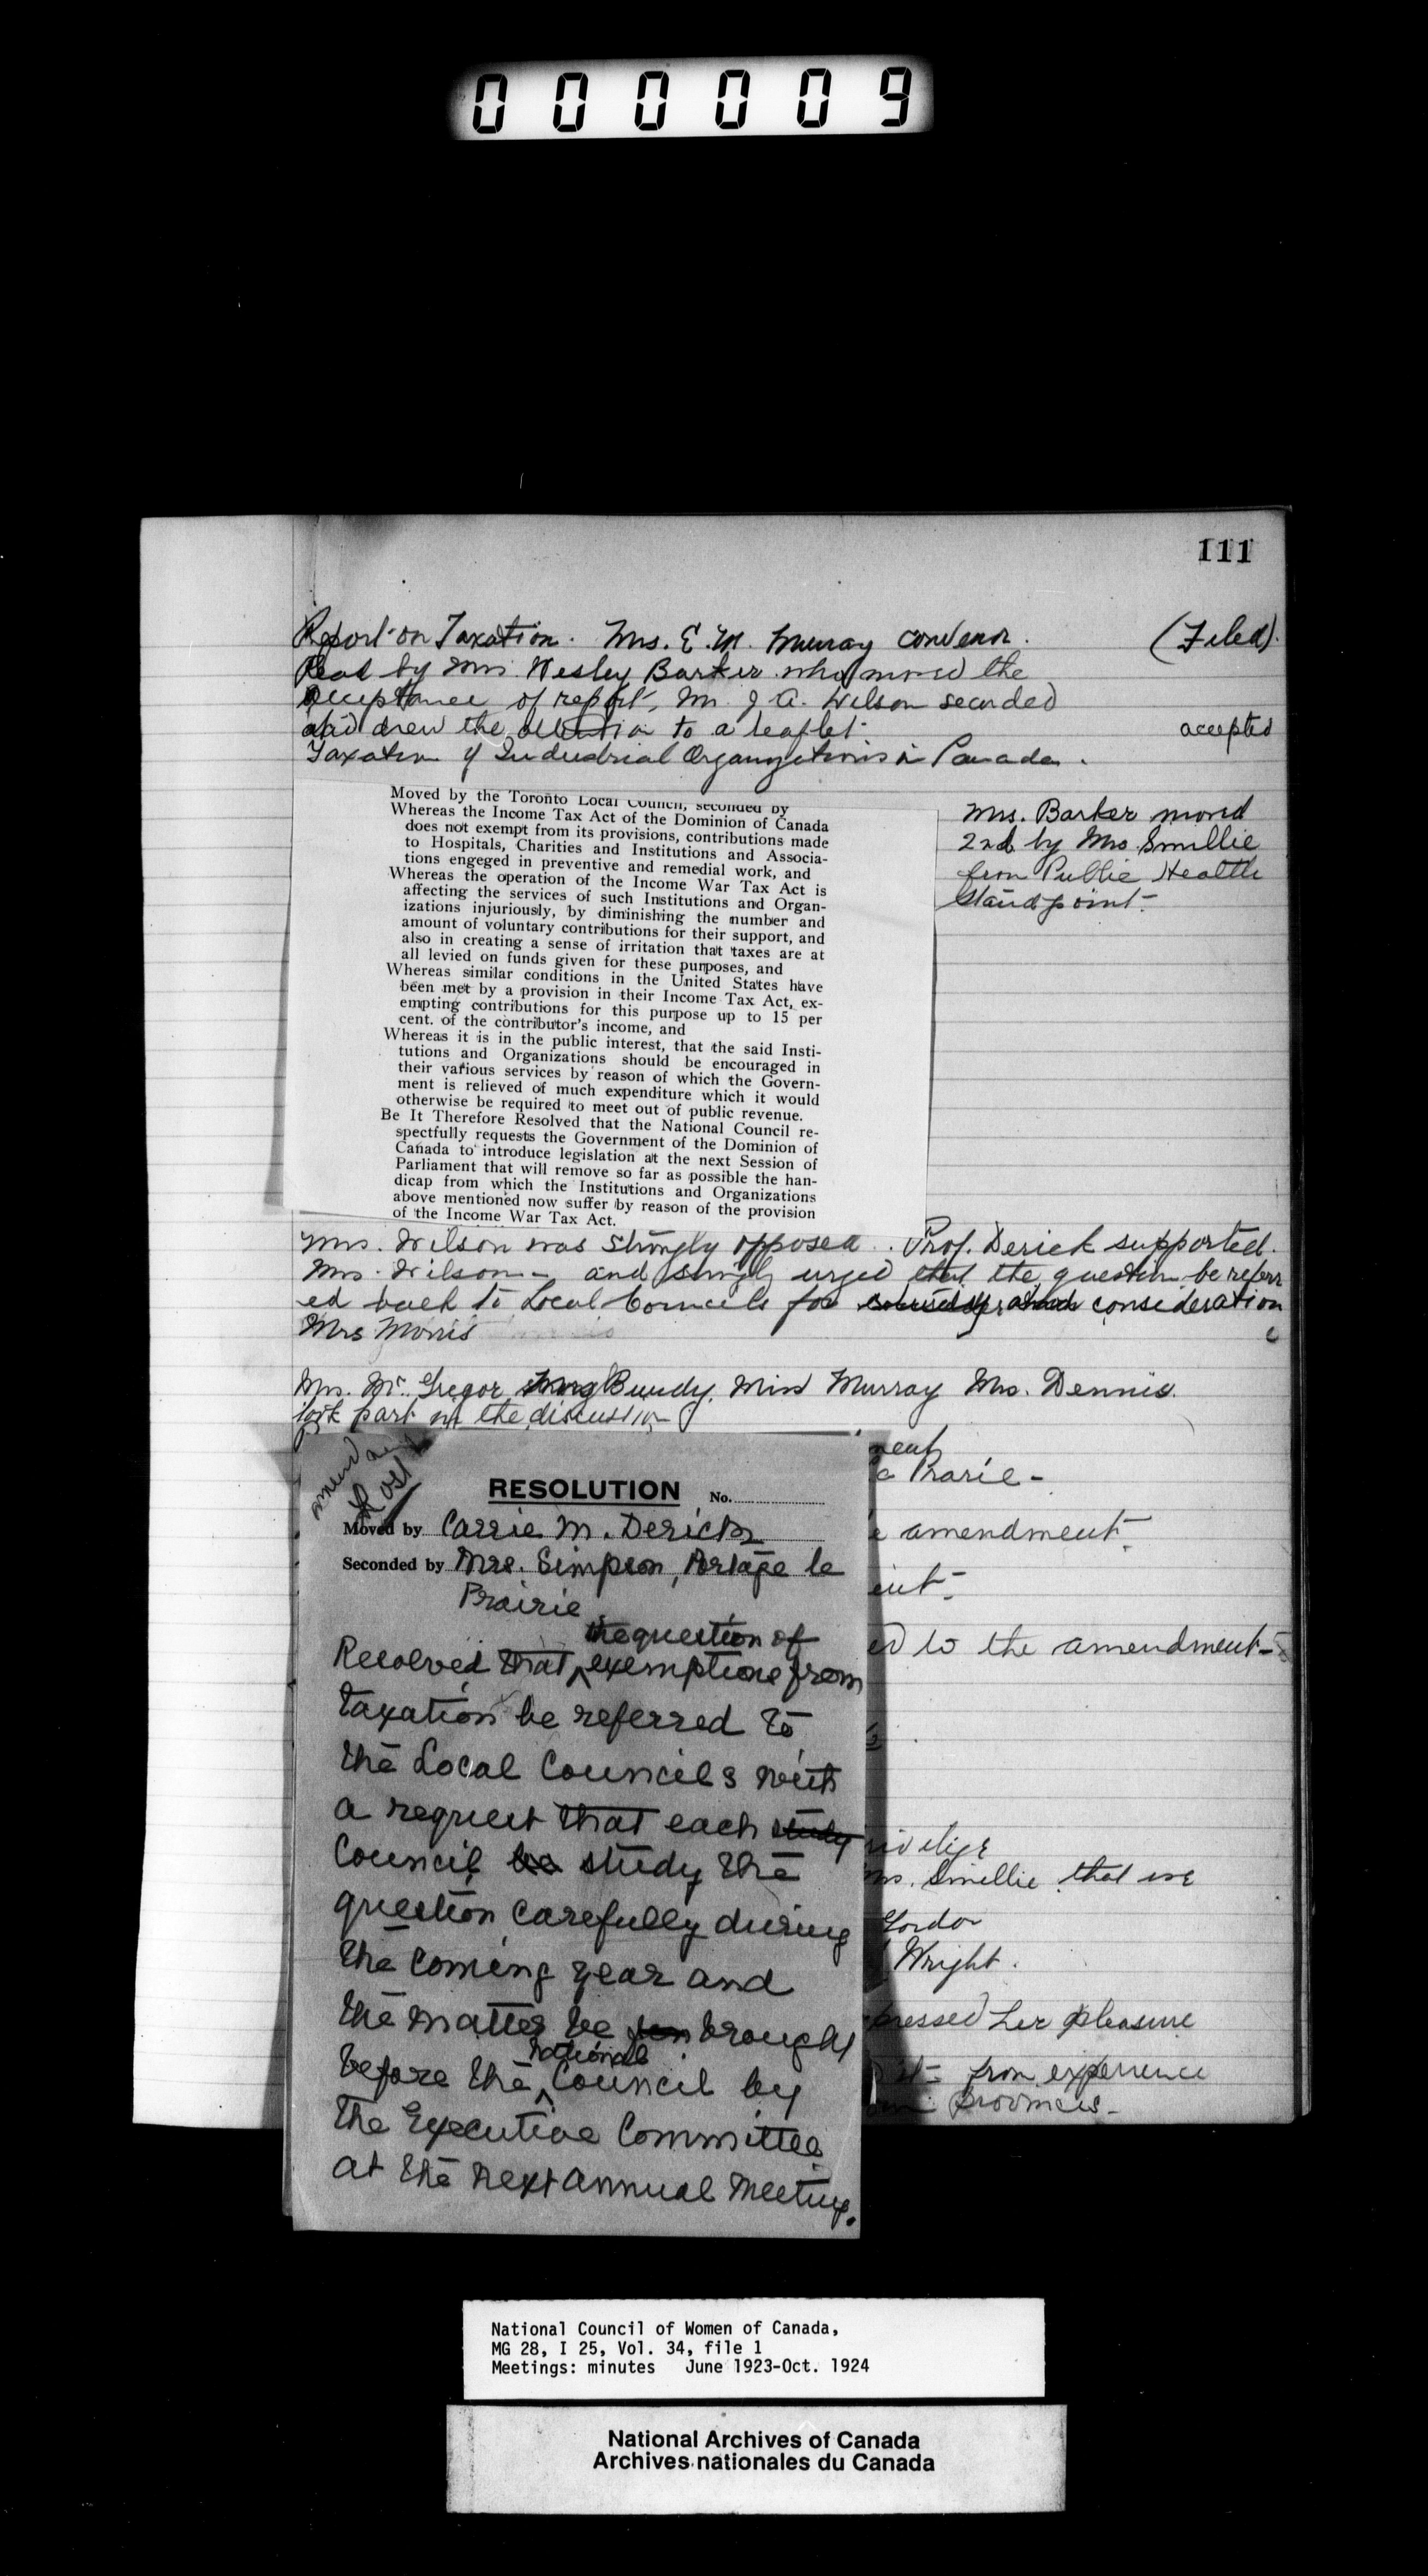 000009
111
Report on Taxation. Mrs. E. M. Murray Convenor. (Filed).
Read by Mrs Wesley Barker who moved the
acceptance of report, Mrs J A. Wilson seconded
and drew the attention to a leaflet. accepted
Taxation of Industrial Organizations in Canada.
Moved by the Toronto Local Council, seconded by
Whereas the Income Tax Act of the Dominion of Canada
does not exempt from its provisions, contributions made
to Hospitals, Charities and Institutions and Associa-
tions engeged in preventive and remedial work, and
Whereas the operation of the Income War Tax Act is
affecting the services of such Institutions and Organ-
izations injuriously, by diminishing the number and
amount of voluntary contributions for their support, and
also in creating a sense of irritation that taxes are at
all levied on funds given for these purposes, and
Whereas similar conditions in the United States have
been met by a provision in their Income Tax Act, ex-
empting contributions for this purpose up to 15 per
cent. of the contributor's income, and
Whereas it is in the public interest, that the said Insti-
tutions and Organizations should be encouraged in
their various services by reason of which the Govern-
ment is relieved of much expenditure which it would
otherwise be required to meet out of public revenue.
Be It Therefore Resolved that the National Council re-
spectfully requests the Government of the Dominion of
Canada to introduce legislation at the next Session of
Parliament that will remove so far as possible the han-
dicap from which the Institutions and Organizations
above mentioned now suffer by reason of the provision
of the Income War Tax Act.
Mrs. Barker moved
2nd by Mrs Smillie
from Public Health
Standpoint.
Mrs. Wilson was strongly opposed. Prof. Derick supported.
Mrs. Wilson - and strongly urged that the question be referr
ed back to Local Councils for consideration
Mrs Morris
Mrs. Mc Gregor Bundy, Miss Murray Mrs. Dennis.
took part in the discussion
amendment
Lost
RESOLUTION No.
Moved by Carrie M. Derick
Seconded by Mrs. Simpson, Portage la
Prairie
the question of
Resolved that exemptions from
taxation be referred to
the Local Councils with
a request that each study
Council be study the
question carefully during
the coming year and
the matter be brought
national
before the Council by
the Executive Committee
at the next annual meeting.
Prarie -
amendment.
to the amendment -
Smellie that we
Gordon
Wright.
pressed her pleasure
from experience
Provinces -
National Council of Women of Canada,
MG 28, I 25, Vol. 34, file 1
Meetings: minutes June 1923-Oct. 1924
National Archives of Canada
Archives nationales du Canada